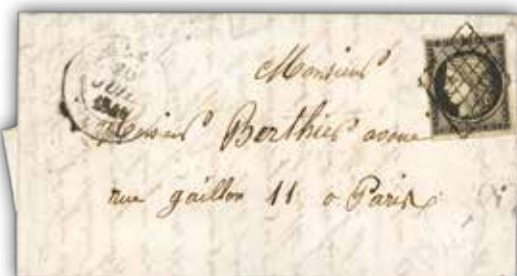 JUIL
Monsieur
Monsieur Berthier avoué
rue gaillon 11 à Paris